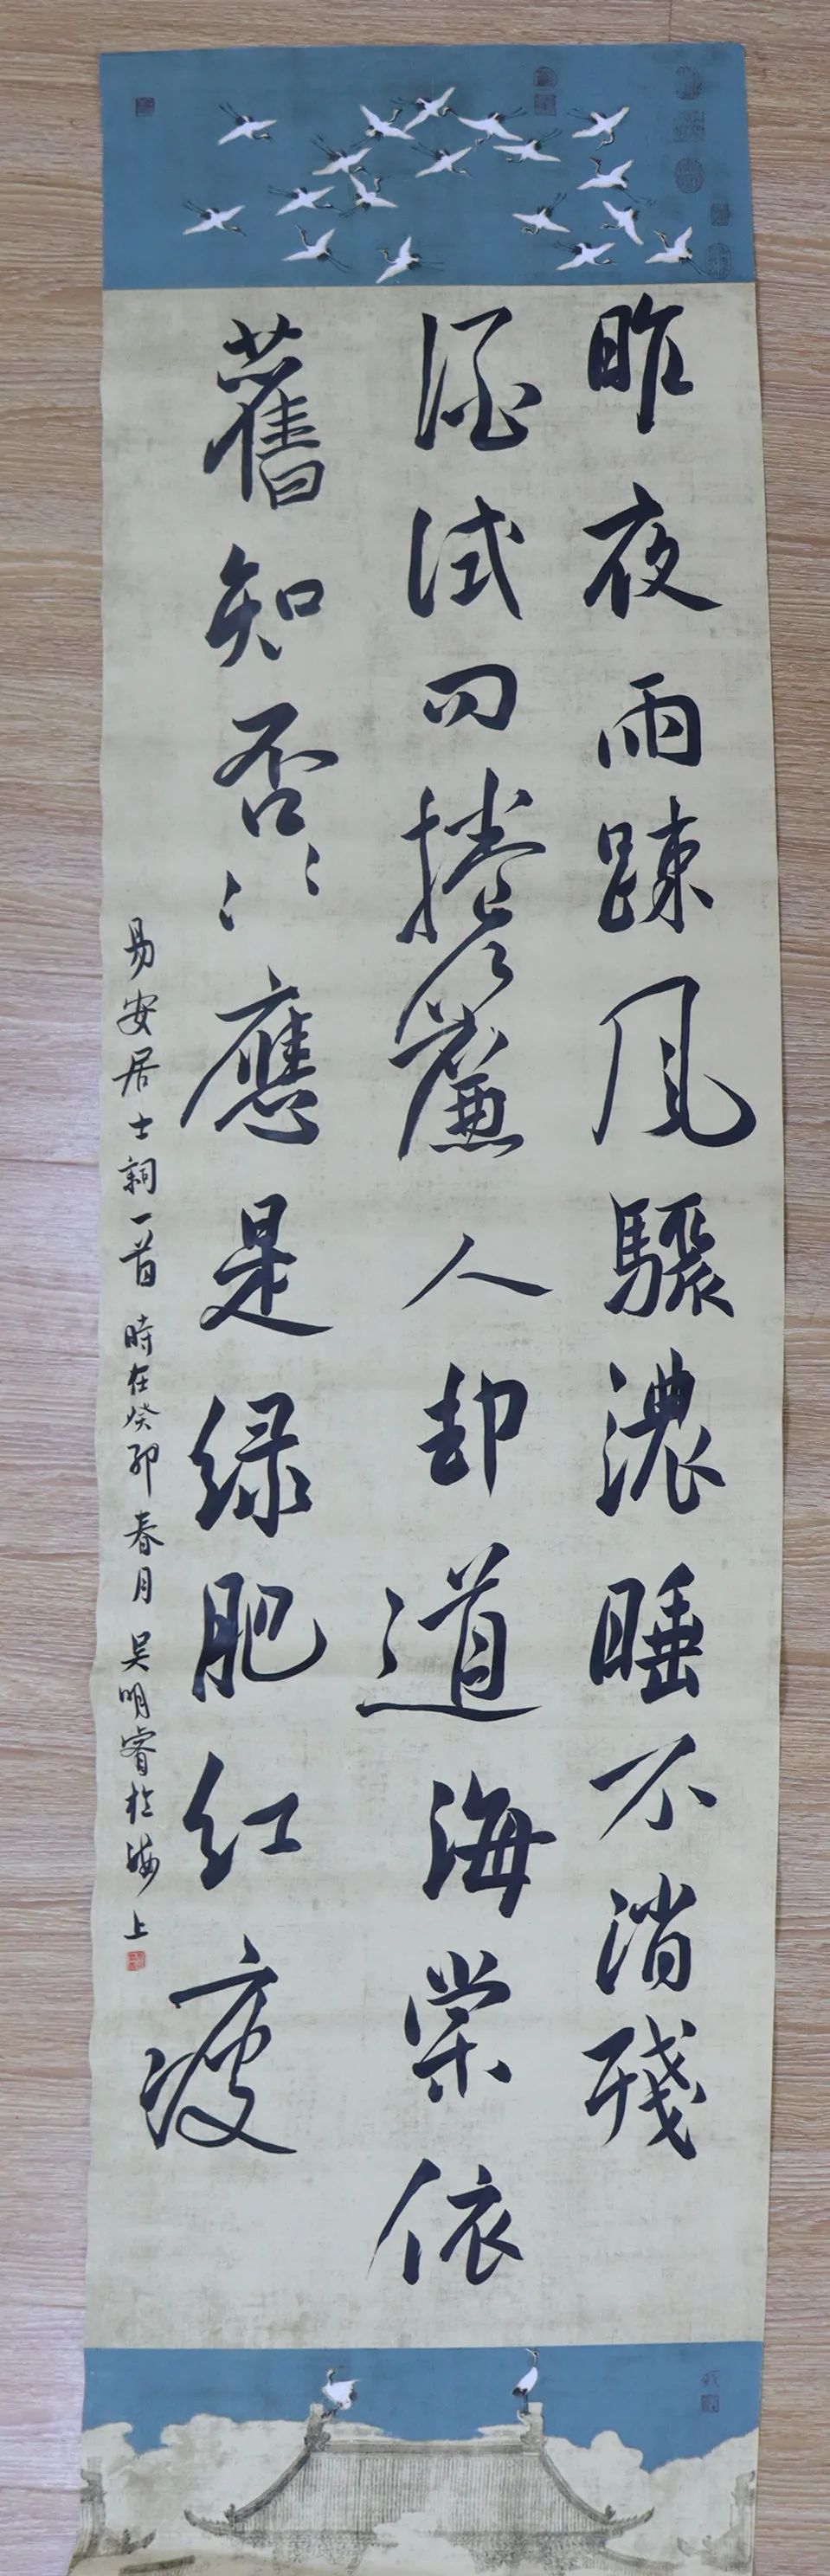 昨夜雨踈風驟濃睡不消殘
酒試問捲簾人却道海棠依
舊知否、、應是绿肥红瘦
易安居士詞一首 時在癸卯春月 吴明睿於海上